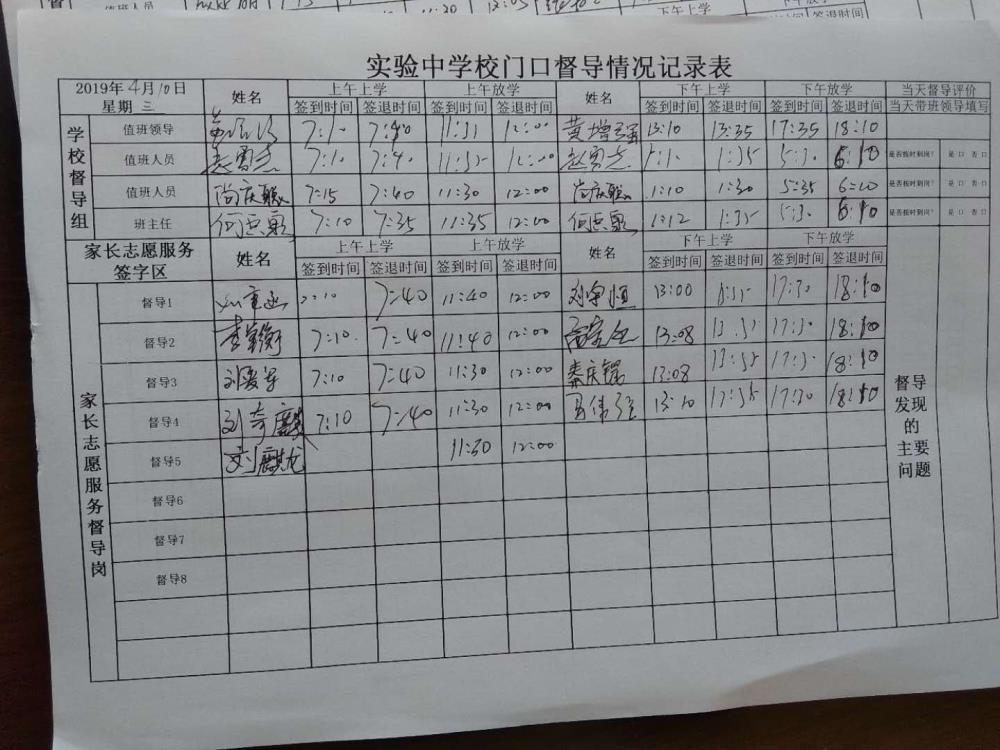 值班人员
下午上学
签退时间
实验中学校门口督导情况记录表
2019年4月10日 姓名 上午上学 上午放学 姓名 下午上学 下午放学 当天督导评价
星期三 签到时间 签退时间 签到时间 签退时间 签到时间 签退时间 签到时间 签退时间 当天带班领导填写
学校督导组
值班领导 7:10 7:40 12:00 黄增强 13:10 13:35 17:35 18:10
值班人员 赵勇志 7:10 7:40 11:35 12:00 赵勇志 1:35 5:30 6:10 是否按时到岗? 是口 否口
值班人员 尚庆聪 7:15 7:40 11:30 12:00 尚庆聪 1:10 1:30 5:35 6:10 是否按时到岗? 是口 否口
班主任 7:10 7:35 11:35 12:00 1:12 1:35 5:30 6:10 是否按时到岗? 是口 否口
家长志愿服务 姓名 上午上学 上午放学 姓名 下午上学 下午放学
签字区 签到时间 签退时间 签到时间 签退时间 签到时间 签退时间 签到时间 签退时间
家长志愿服务督导岗
督导1 7:40 11:40 12:00 刘宇恒 13:00 17:30 18:10
督导2 7:10 7:40 11:40 12:00 13:08 17:30 18:10
督导3 刘爱军 7:10 7:40 11:30 12:00 秦庆锴 13:08 13:35 17:30 18:10
督导4 刘奇麒 7:10 7:40 11:30 12:00 13:10 17:30 18:10
督导5 刘麒龙 11:30 12:00
督导6
督导7
督导8
督导
发现
的
主要
问题